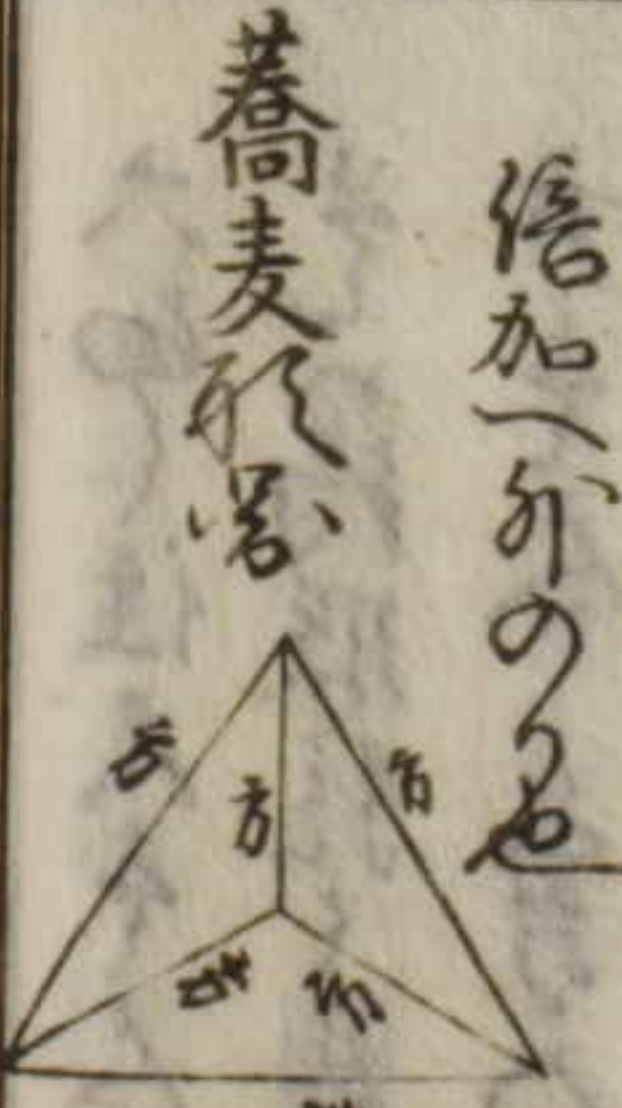 倍加へ外のり也
蕎麦形図
方
方
方
方
方